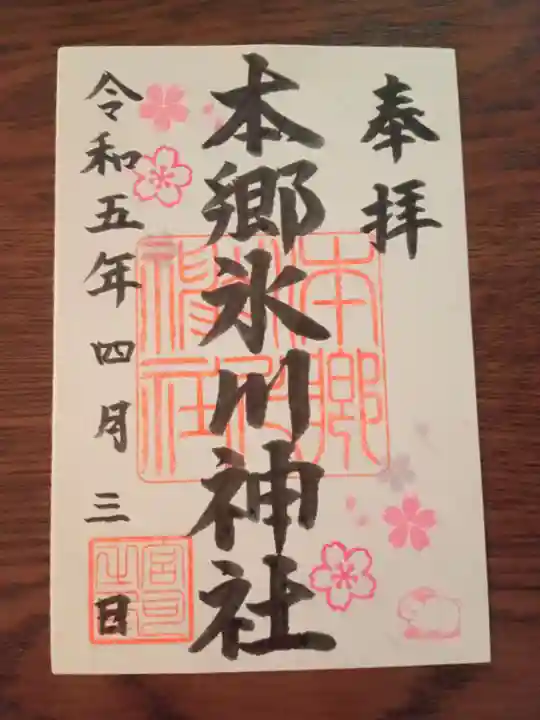 奉拝
本郷氷川神社
令和五年四月三日
本郷氷川神社